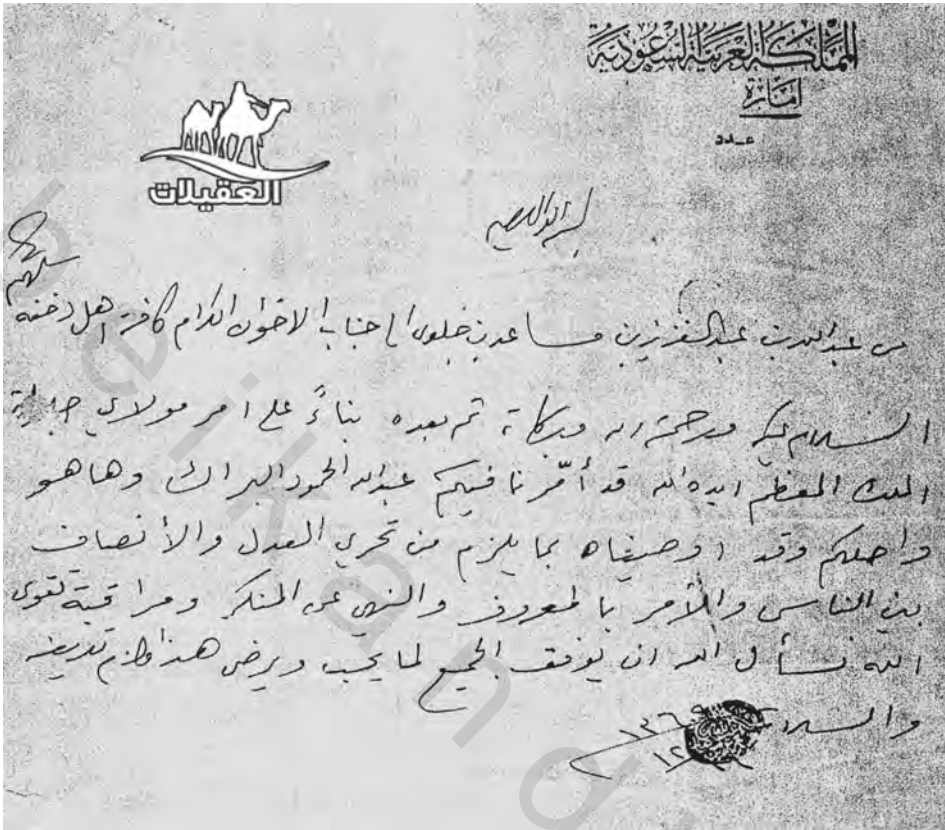 المملكة العربية السعودية
امارة
عـدد
العقيلات
بسم الله الرحمن الرحيم
سلمهم
من عبدالله بن عبدالعزيز بن مساعد بن جلوي الى جناب الاخوان الكرام كافة اهل دخنه
السلام عليكم ورحمة الله وبركاته ثم بعده بناءً على امر مولاي جلالة
الملك المعظم ايده الله قد أمّرنا فيكم عبدالله الحمود البراك وها هو
واصلكم وقد اوصيناه بما يلزم من تحري العدل والأنصاف
بين الناس والأمر بالمعروف والنهي عن المنكر ومراقبة تقوى
الله نسأل الله ان يوفق الجميع لما يحب ويرضى هذا ما لزم تعريفه
والسلام
١٣٦٩
١٢
beikand